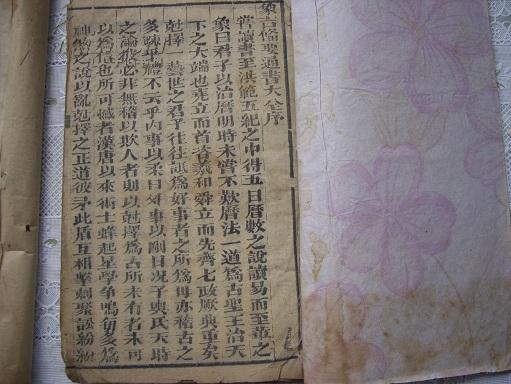 象吉備要通書大全序
嘗讀書至洪範五紀之中得五曰曆數之說讀易而至革之
象曰君子以治曆明時未嘗不歎曆法一道為古聖王治天
下之大端也堯立而首咨羲和舜立而先齊七政厥典重矣
尅擇 藝世之君子往往訿為好事者之所為毋亦稽古之
多疎乎禮不云乎內事以柔日外事以剛日况子輿氏天時
之論彼必非無稽以欺人者則以尅擇為古所未有者未可
以為信也所可憾者漢唐以來術士蜂起星學爭鳴多為
神煞之說以亂尅擇之正道彼矛此盾互相擊刺聚訟紛紛